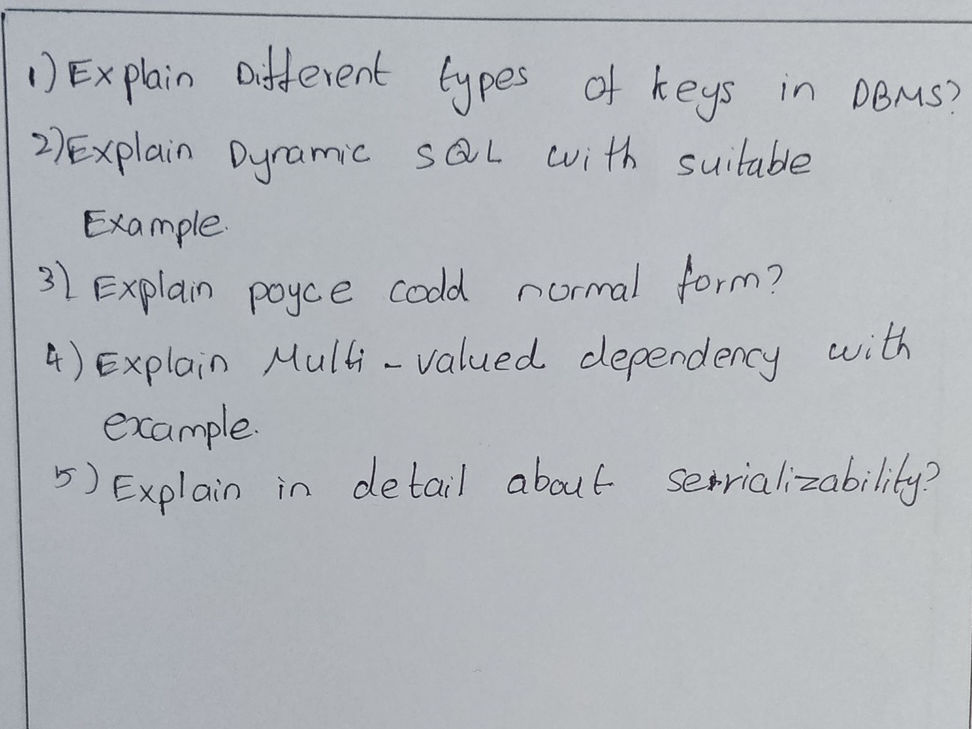 1) Explain Different types of keys in DBMS?
2) Explain Dynamic SQL with suitable
Example.
3) Explain poyce codd normal form?
4) Explain Multi-valued dependency with
example.
5) Explain in detail about serializability?